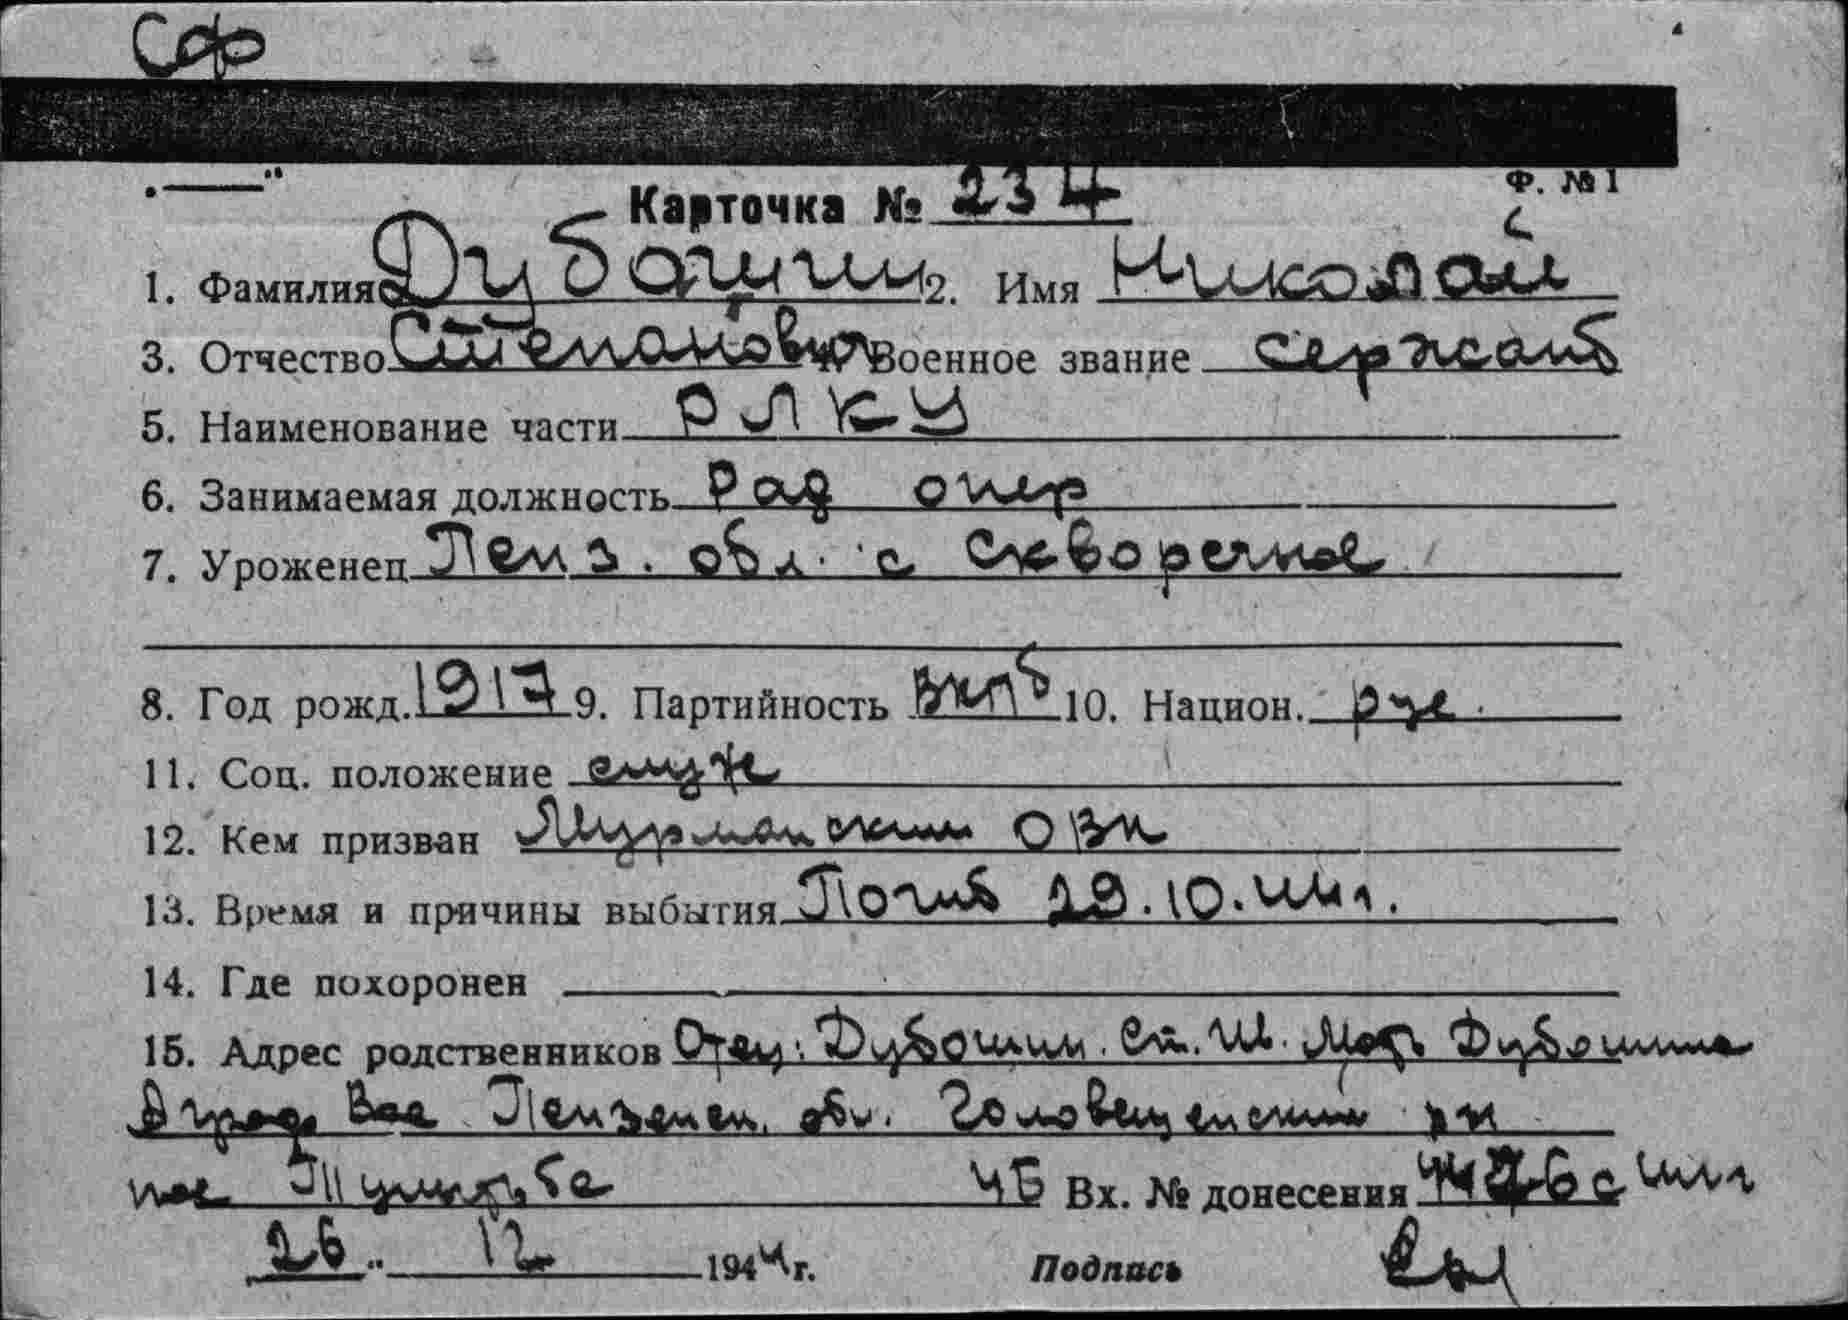 Сф
Ф. №1
Карточка № 234
1. Фамилия Дубашин 2. Имя Николай
3. Отчество Степанович Военное звание сержант
5. Наименование части РЛКУ
6. Занимаемая должность Рад опер
7. Уроженец Пенз. обл. с Скворечное
8. Год рожд. 1917 9. Партийность ВКПб 10. Национ. рус.
11. Соц. положение служ
12. Кем призван Мурманским ОВК
13. Время и причины выбытия Погиб 29.10.44г.
14. Где похоронен
15. Адрес родственников Отец: Дубошин. Ст. Ив. Мать Дубошина
Вас Пензенск. обл. Головещенский рн
пос
ЧБ Вх. № донесения 44г
26 " 12 1944г. Подпись